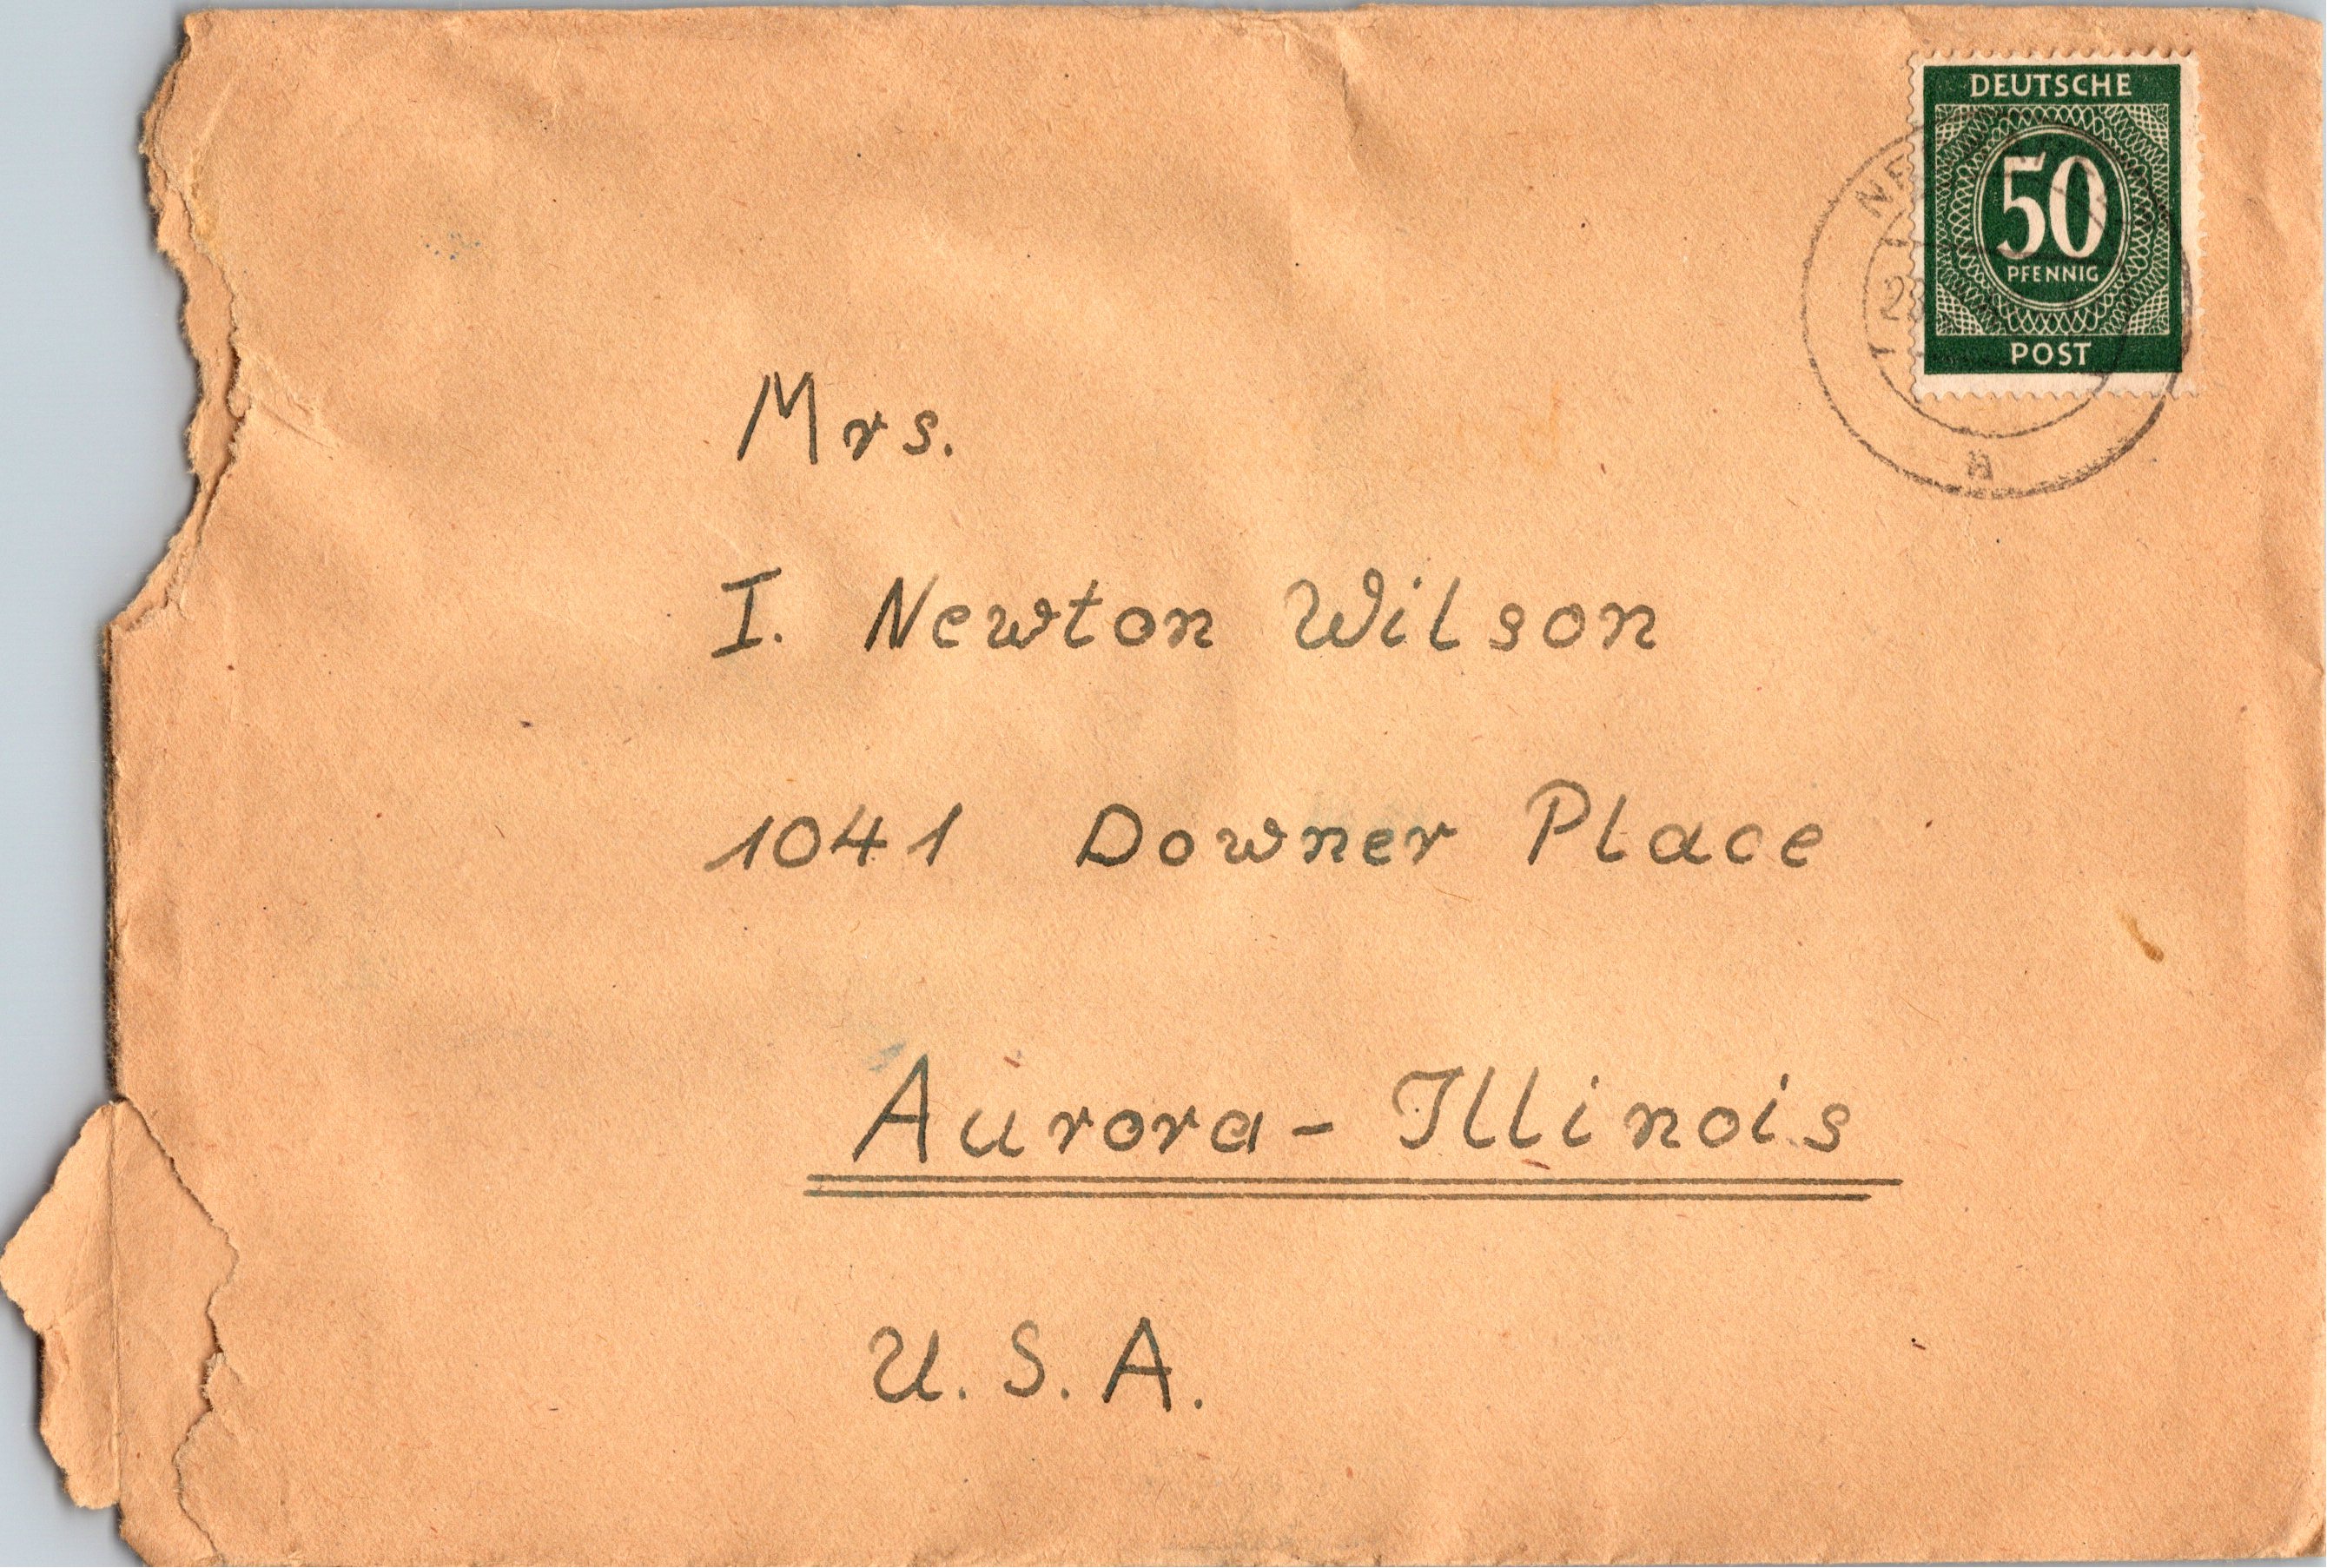 DEUTSCHE
50
PFENNIG
POST
Mrs.
I. Newton Wilson
1041 Downer Place
Aurora - Illinois
U.S.A.